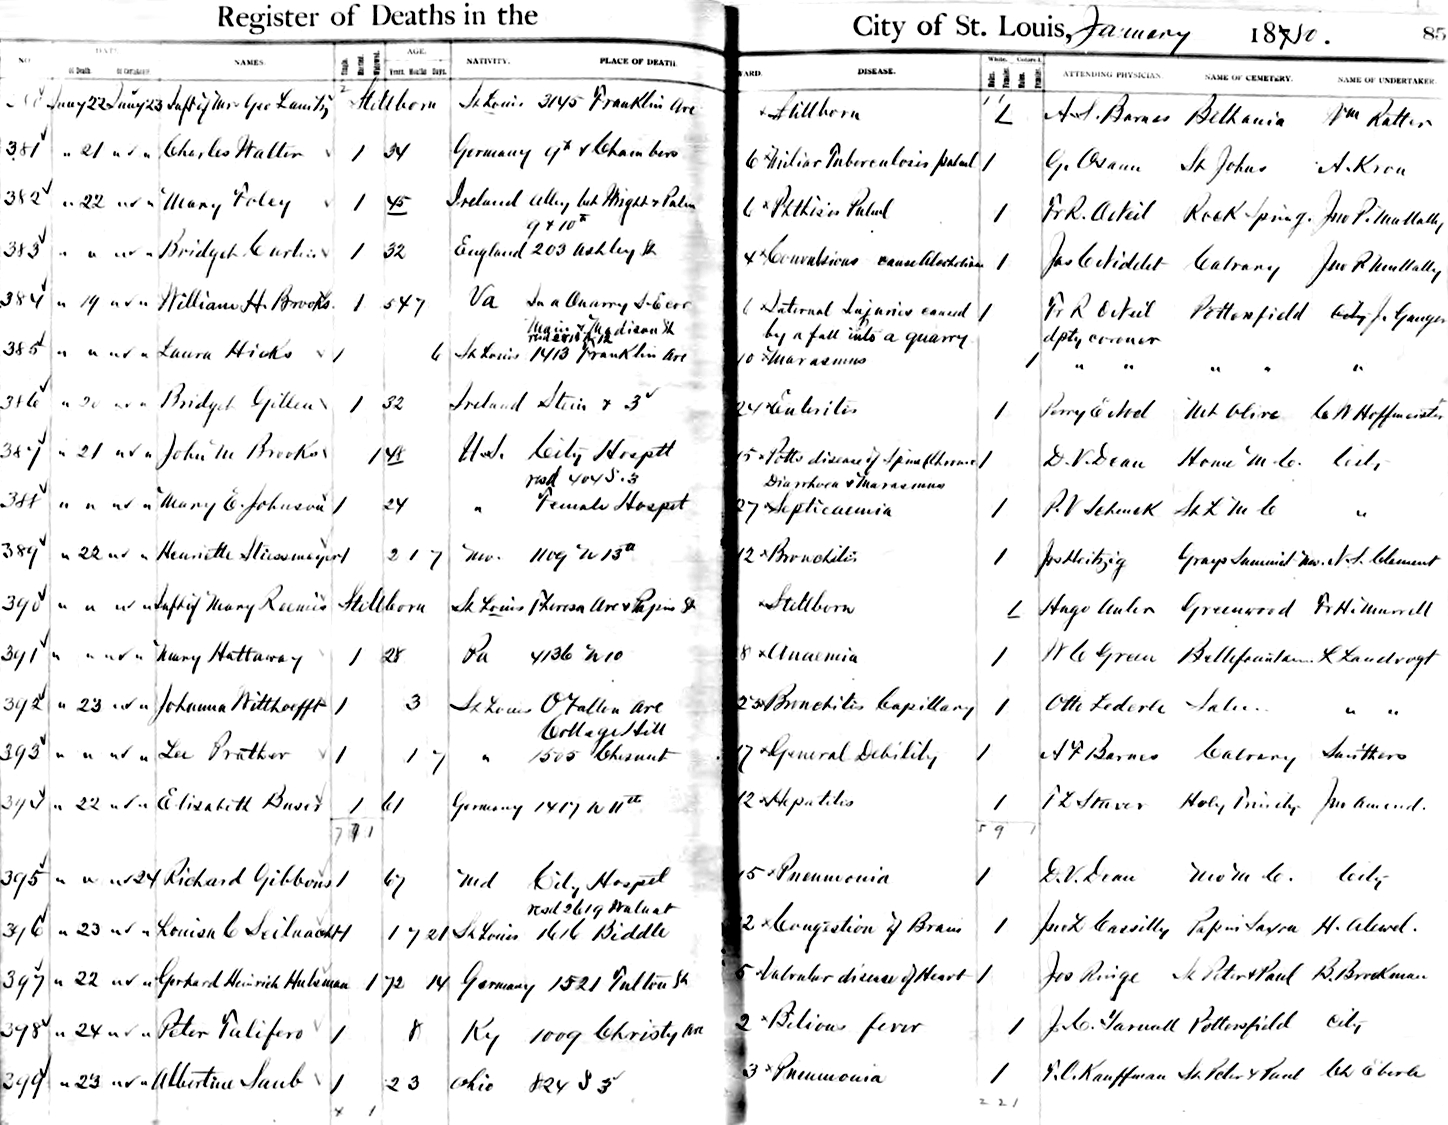 Register of Deaths in the City of St. Louis, January 1880. 85
NO. DATE of Death of Certificate NAMES. Single. Married. Widowed. AGE. Years. Months Days. NATIVITY. PLACE OF DEATH. WARD. DISEASE. White. Males. Females. Colored. Males. Females. ATTENDING PHYSICIAN. NAME OF CEMETERY. NAME OF UNDERTAKER.
Jany 22 Jany 23 Inft of Mr Geo Stillborn St Louis 3145 Franklin Ave Stillborn A.S. Barnes Bethania Wm Ratter
381 " 21 " " Charles Walter 1 34 Germany 9th & Chambers 6 Miliar Tuberculosis pulml 1 G. Osann St Johns A. Kron
382 " 22 " " Mary Foley 1 45 Ireland alley bet Wright & Palm 6 Phthisis Pulml 1 Fr R. O'Neil Rock Spring. Jno P. Mullally
9 & 10th
383 " " " " Bridget Curtin 1 32 England 203 Ashley St 4 Convulsions cause Alcoholism 1 Jas C Nidelet Calvary Jno P. Mullally
384 " 19 " " William H. Brooks 1 54 7 Va In a Quarry S.E cor 6 Internal Injuries caused 1 Fr R O'Neil Pottersfield City J. Ganger
Main & Madison St by a fall into a quarry dpty coroner
385 " " " " Laura Hicks 1 6 St Louis 1413 Franklin Ave 10 Marasmus 1 " " " " "
386 " 20 " " Bridget Gillen 1 32 Ireland Stein & 3d 24 Enteritis 1 Mt Olive C N Hoffmeister
387 " 21 " " John M Brooks 1 48 U.S. City Hosptl 15 Potts disease of Spine Chronic 1 D.V. Dean Home M. C. City
resd 404 S. 3 Diarrhoea & Marasmus
388 " " " " Mary E. Johnson 1 24 " Female Hospt 27 Septicaemia 1 P.V Schenck St L M C "
389 " 22 " " Henriette Stiessmeyer 1 2 1 7 Mo. 1109 N 13th 12 Bronchitis 1 Jos Heitzig Grays Summit Mo. N.S. Clement
390 " " " " Inft of Mary Stillborn St Louis Theresa Ave & Papin St Stillborn Hugo Greenwood Fr H. Murrell
391 " " " " Mary Hattaway 1 28 Pa 4136 N 10 8 Anaemia 1 W C Green Bellefountain L Landvogt
392 " 23 " " Johanna Witthoefft 1 3 St Louis O'Fallon Ave 23 Bronchitis Capillary 1 Otto Lederle Salem " "
College Hill
393 " " " " Lee Prather 1 1 7 " 1505 Chesnut 17 General Debility 1 A F Barnes Calvary Smithers
" 22 " " Elizabeth Buser 1 61 Germany 1417 N 11th 12 Hepatitis 1 Holy Trinity Jno Amend.
7 7 1 5 9 1
395 " " " 24 Richard Gibbons 1 67 Md City Hosptl 15 Pneumonia 1 D.V. Dean Mo M. C. City
resd 2619 Walnut
396 " 23 " " Louisa C 1 1 7 21 St Louis 1616 Biddle 22 Congestion of Brain 1 Jno L Cassilly H.
397 " 22 " " Gerhard Heinrich Hulsman 1 72 14 Germany 1521 Fulton St 5 Valvular disease of Heart 1 Jos Ringe St Peter & Paul B. Brockman
398 " 24 " " Peter Tulifero 1 8 Ky 1009 Christy Ave 2 Bilious fever 1 J. C. Yarnall Pottersfield City
399 " 23 " " Albertine Saub 1 2 3 Ohio 824 S 3d 3 Pneumonia 1 F.C. Kauffman St Peter & Paul Ch Eberle
4 1 2 2 1